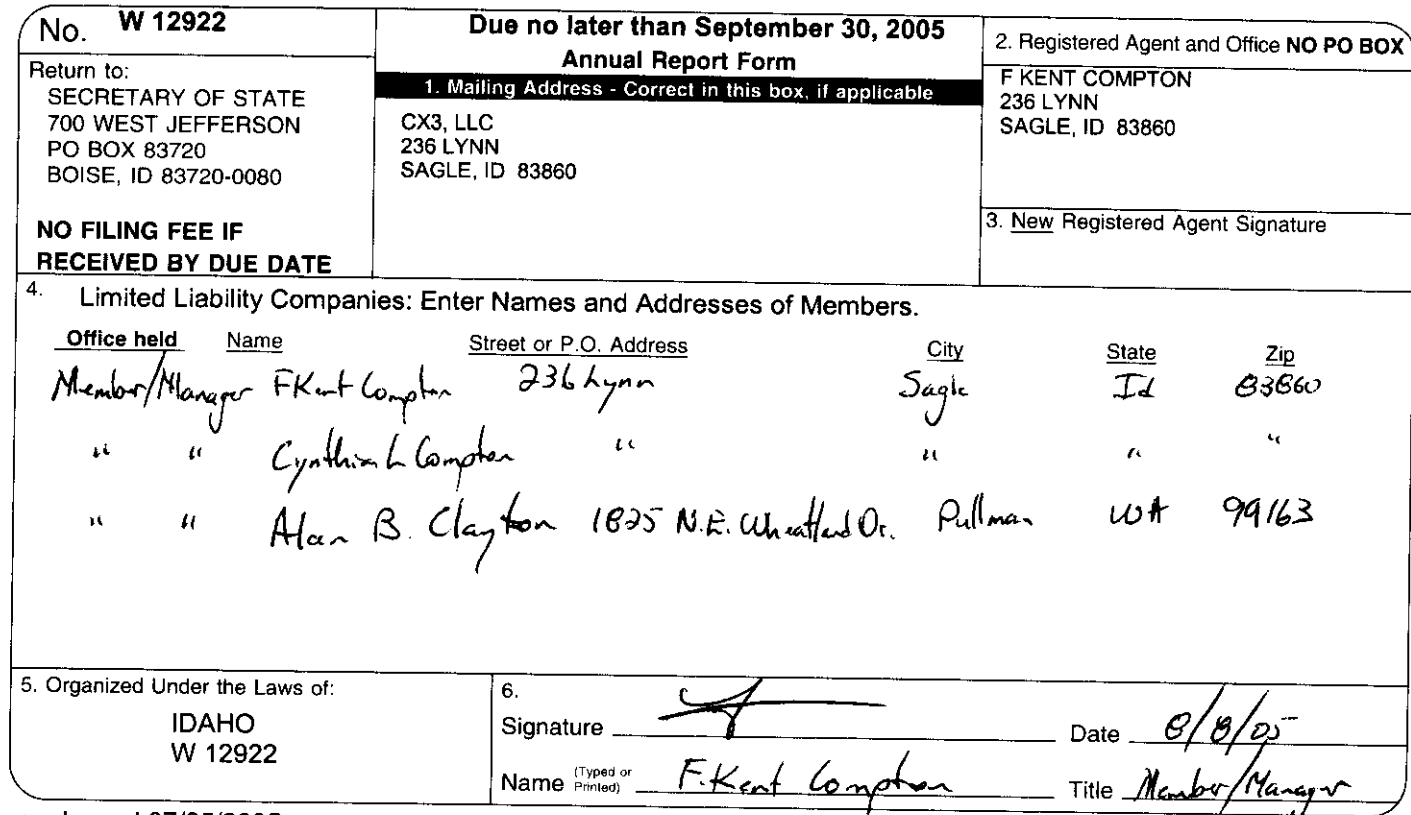 No. W 12922
Return to:
SECRETARY OF STATE
700 WEST JEFFERSON
PO BOX 83720
BOISE, ID 83720-0080
NO FILING FEE IF
RECEIVED BY DUE DATE
Due no later than September 30, 2005
Annual Report Form
1. Mailing Address - Correct in this box, if applicable
CX3, LLC
236 LYNN
SAGLE, ID 83860
2. Registered Agent and Office NO PO BOX
F KENT COMPTON
236 LYNN
SAGLE, ID 83860
3. New Registered Agent Signature
4. Limited Liability Companies: Enter Names and Addresses of Members.
Office held Name Street or P.O. Address City State Zip
Member/Manager F Kent Compton 236 Lynn Sagle Id 83860
" " Cynthia L Compton " " " "
" " Alan B. Clayton 1825 N.E. Wheatland Dr. Pullman WA 99163
5. Organized Under the Laws of:
IDAHO
W 12922
6.
Signature Date 8/8/05
Name (Typed or Printed) F. Kent Compton Title Member/Manager